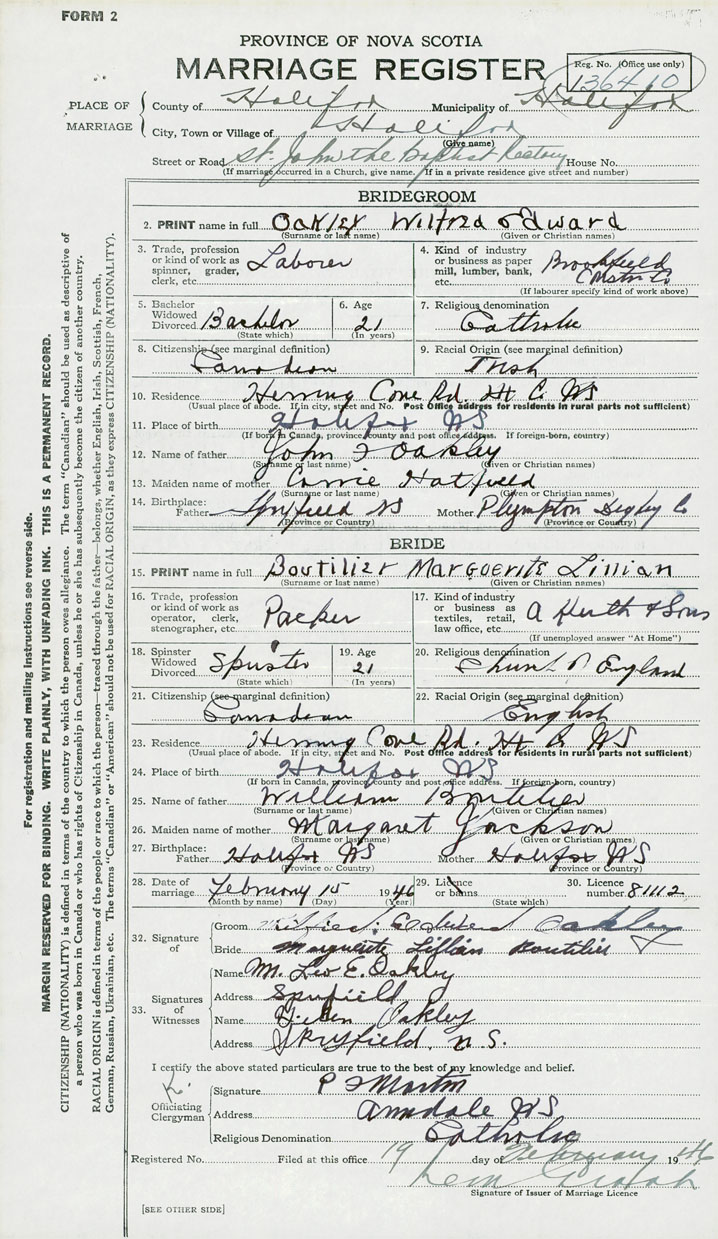 FORM 2
PROVINCE OF NOVA SCOTIA
MARRIAGE REGISTER
Reg. No. (Office use only)
136410
PLACE OF MARRIAGE
County of Halifax Municipality of Halifax
City, Town or Village of Halifax
(Give name)
Street or Road St. John the Baptist Rectory House No.
(If marriage occurred in a Church, give name. If in a private residence give street and number)
BRIDEGROOM
2. PRINT name in full Oakley Wilfred Edward
(Surname or last name) (Given or Christian names)
3. Trade, profession or kind of work as spinner, grader, clerk, etc. Laborer
4. Kind of industry or business as paper mill, lumber, bank, etc. Brookfield Constn Co
(If labourer specify kind of work above)
5. Bachelor Widowed Divorced Bachelor
(State which)
6. Age 21
(In years)
7. Religious denomination Catholic
8. Citizenship (see marginal definition) Canadian
9. Racial Origin (see marginal definition) Irish
10. Residence Herring Cove Rd. Hx Co NS
(Usual place of abode. If in city, street and No. Post Office address for residents in rural parts not sufficient)
11. Place of birth Halifax NS
(If born in Canada, province, county and post office address. If foreign-born, country)
12. Name of father John J Oakley
(Surname or last name) (Given or Christian names)
13. Maiden name of mother Carrie Hatfield
(Surname or last name) (Given or Christian names)
14. Birthplace: Father Spryfield NS Mother Plympton Digby Co
(Province or Country) (Province or Country)
BRIDE
15. PRINT name in full Boutilier Marguerite Lillian
(Surname or last name) (Given or Christian names)
16. Trade, profession or kind of work as operator, clerk, stenographer, etc. Packer
17. Kind of industry or business as textiles, retail, law office, etc. A Keith & Sons
(If unemployed answer "At Home")
18. Spinster Widowed Divorced Spinster
(State which)
19. Age 21
(In years)
20. Religious denomination Church of England
21. Citizenship (see marginal definition) Canadian
22. Racial Origin (see marginal definition) English
23. Residence Herring Cove Rd. Hx Co NS
(Usual place of abode. If in city, street and No. Post Office address for residents in rural parts not sufficient)
24. Place of birth Halifax NS
(If born in Canada, province, county and post office address. If foreign-born, country)
25. Name of father William Boutilier
(Surname or last name) (Given or Christian names)
26. Maiden name of mother Margaret Jackson
(Surname or last name) (Given or Christian names)
27. Birthplace: Father Halifax NS Mother Halifax NS
(Province or Country) (Province or Country)
28. Date of marriage February 15 1946
(Month by name) (Day) (Year)
29. Licence or banns
(State which)
30. Licence number 81112
32. Signature of
Groom Wilfred Edward Oakley
Bride Marguerite Lillian Boutilier
33. Signatures of Witnesses
Name M. Leo E. Oakley
Address Spryfield
Name Oakley
Address Spryfield, N.S.
I certify the above stated particulars are true to the best of my knowledge and belief.
Officiating Clergyman
Signature P J Martin
Address Armdale NS
Religious Denomination Catholic
Registered No. Filed at this office 19 day of February 1946
Signature of Issuer of Marriage Licence
[SEE OTHER SIDE]
For registration and mailing instructions see reverse side.
MARGIN RESERVED FOR BINDING. WRITE PLAINLY, WITH UNFADING INK. THIS IS A PERMANENT RECORD.
CITIZENSHIP (NATIONALITY) is defined in terms of the country to which the person owes allegiance. The term "Canadian" should be used as descriptive of
a person who was born in Canada or who has rights of Citizenship in Canada, unless he or she has subsequently become the citizen of another country.
RACIAL ORIGIN is defined in terms of the people or race to which the person—traced through the father—belongs, whether English, Irish, Scottish, French,
German, Russian, Ukrainian, etc. The terms "Canadian" or "American" should not be used for RACIAL ORIGIN, as they express CITIZENSHIP (NATIONALITY).